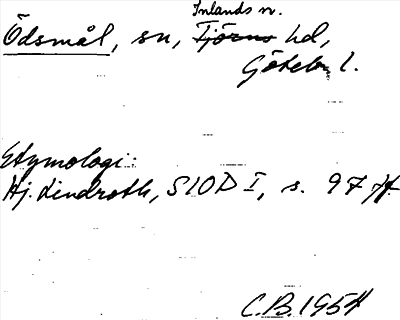 Inlands n.
Ödsmål, sn, Tjörns hd,
Göteb. l.
Etymologi:
Hj. Lindroth, SIOD I, s. 97 ff.
C.B. 1954